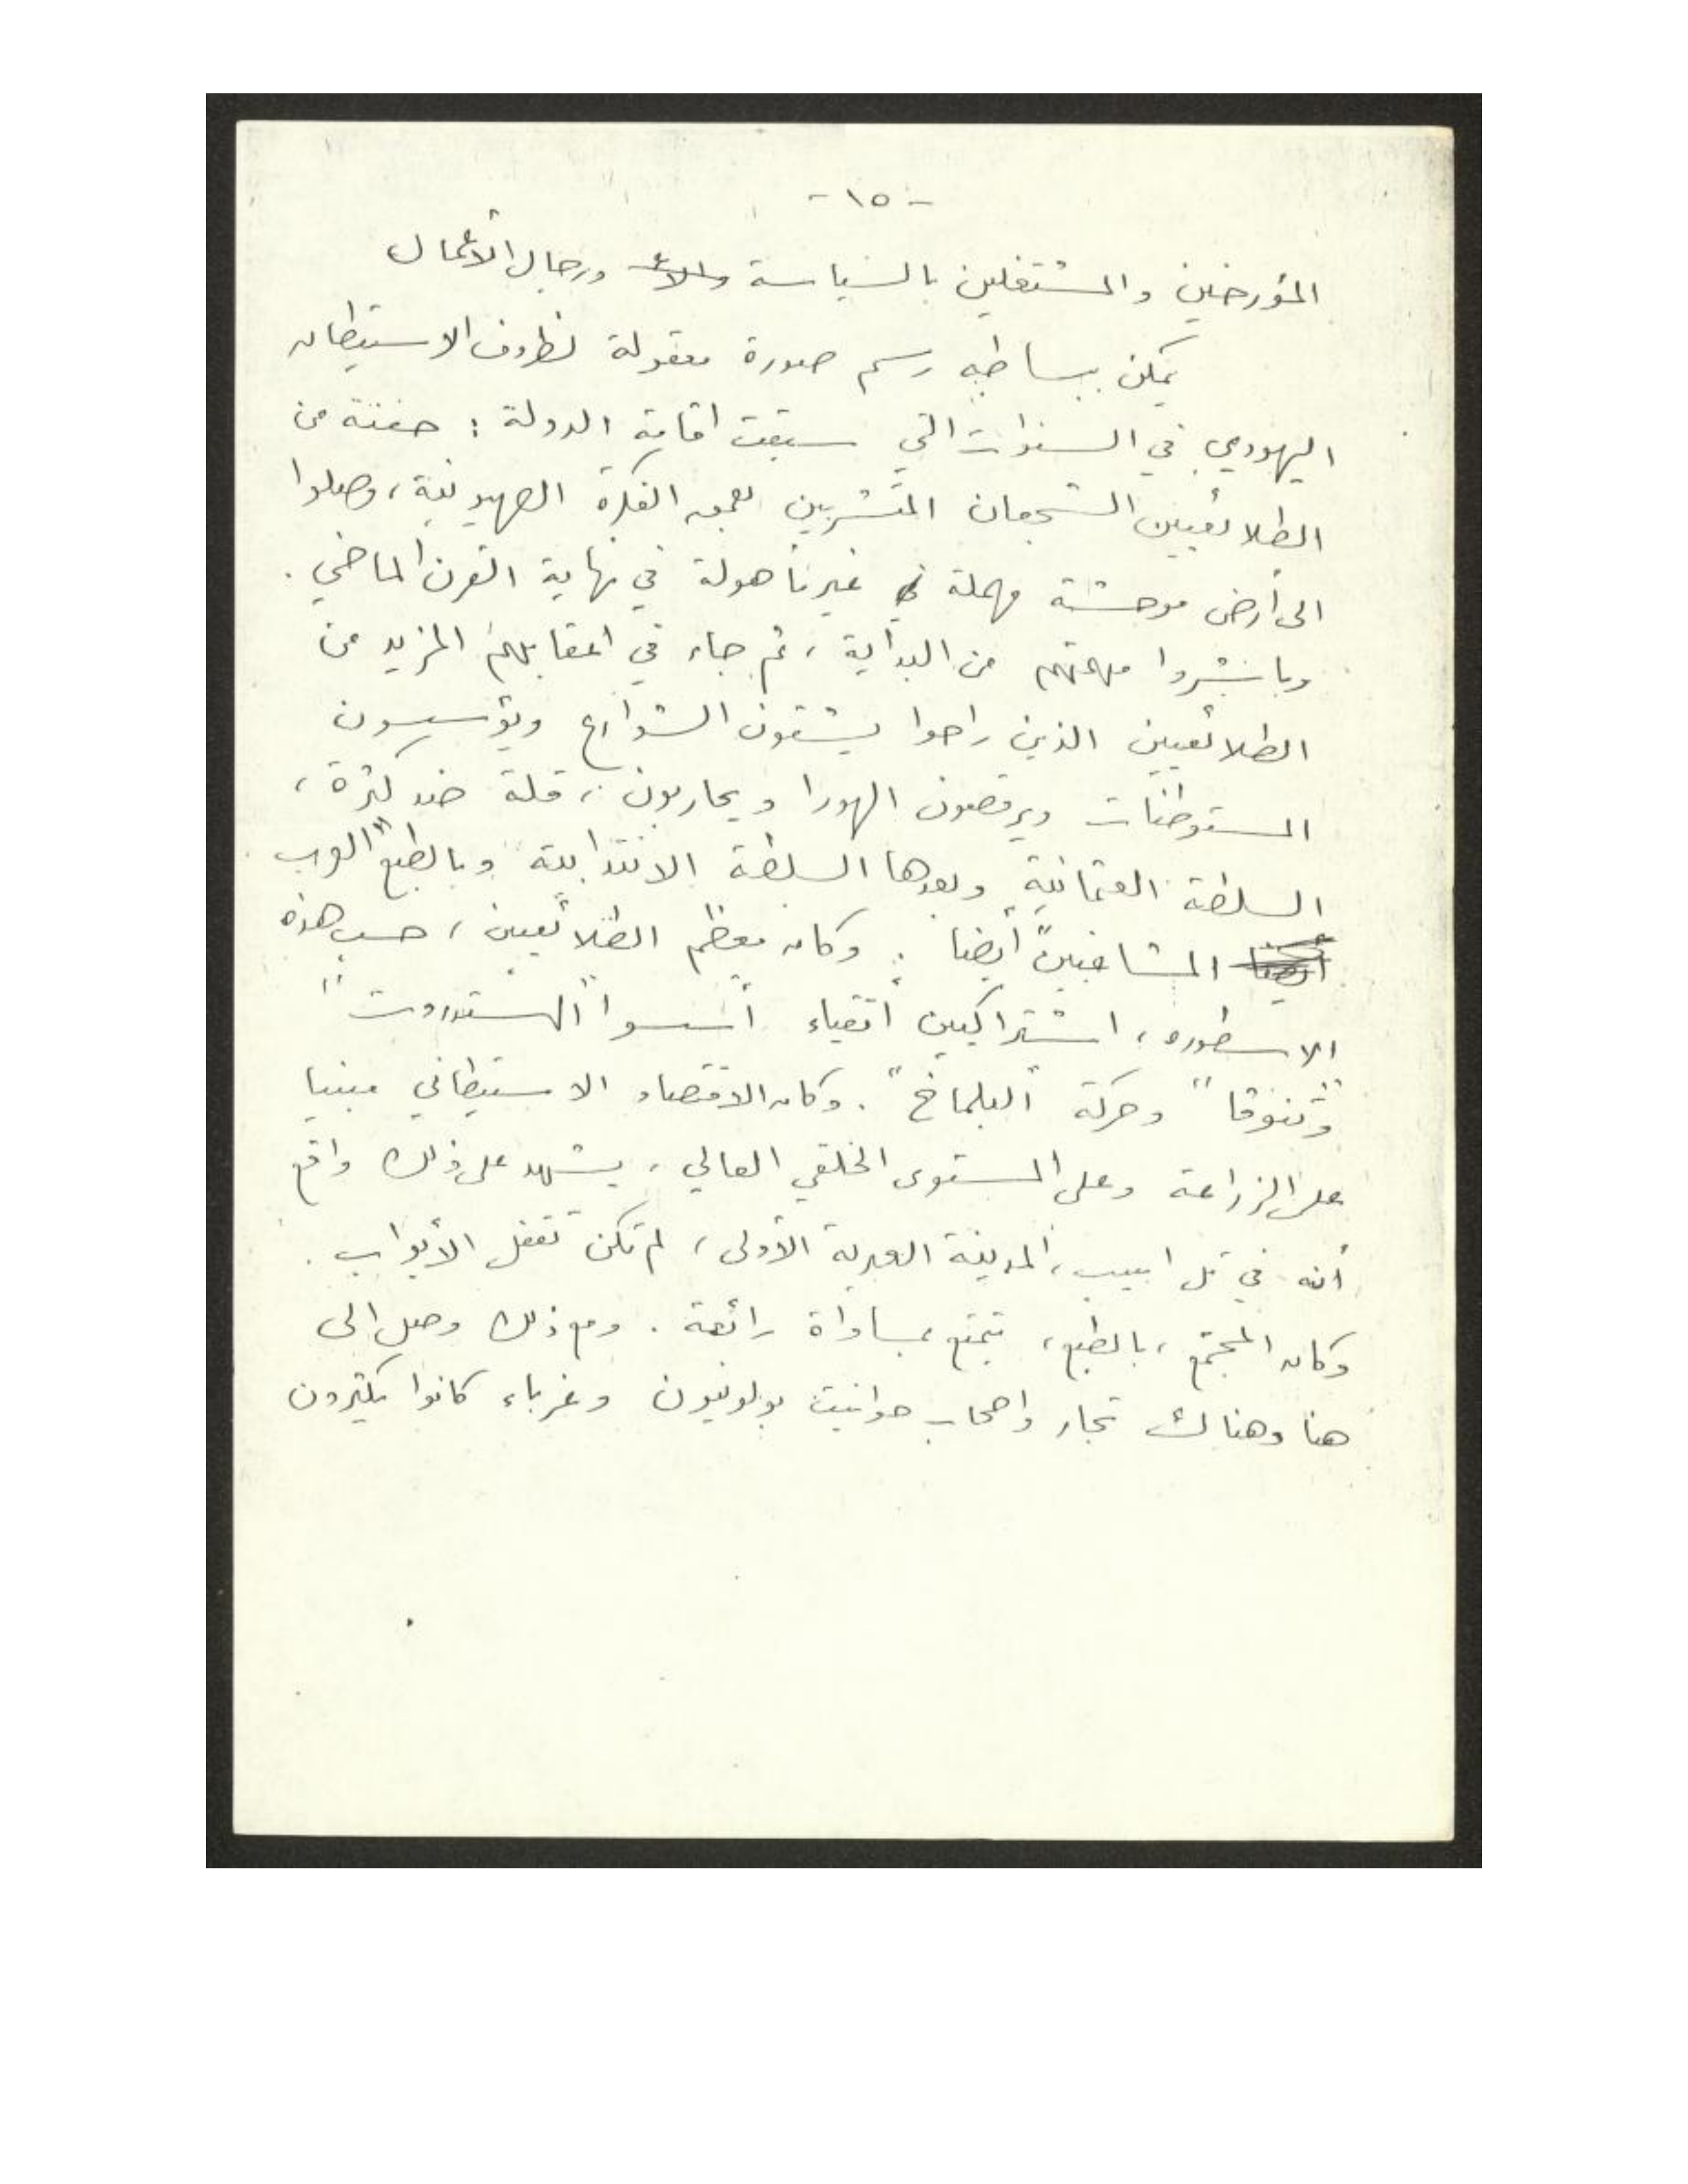 - ١٥ -
المؤرخين والمشتغلين بالسياسة ورجال الأعمال
يمكن ببساطه رسم صورة معقولة لظروف الاستيطان
اليهودي في السنوات التي سبقت اقامة الدولة : حفنة من
الطلائعيين الشجعان المتشربين بعمق الفكرة الصهيونية، وصلوا
الى أرض موحشة مهملة غير مأهولة في نهاية القرن الماضي .
وباشروا مهمتهم من البداية ، ثم جاء في اعقابهم المزيد من
الطلائعيين الذين راحوا يشقون الشوارع ويؤسسون
المستوطنات ويرقصون الهورا ويحاربون ، قلة ضد كثرة ،
السلطة العثمانية وبعدها السلطة الانتدابية وبالطبع "العرب
المشاغبين" أيضا . وكان معظم الطلائعيين ، حسب هذه
الاسطوره ، اشتراكيين أتقياء أسسوا "الهستدروت"
و"تنوفا" وحركة "البلماخ" . وكان الاقتصاد الاستيطاني مبنيا
على الزراعة وعلى المستوى الخلقي العالي ، يشهد على ذلك واقع
أنه في تل ابيب ، المدينة العبرية الأولى ، لم تكن تقفل الأبواب .
وكان المجتمع ، بالطبع ، يتمتع بمساواة رائعة . ومع ذلك وصل الى
هنا وهناك تجار واصحاب حوانيت بولونيون وغرباء كانوا يكثرون